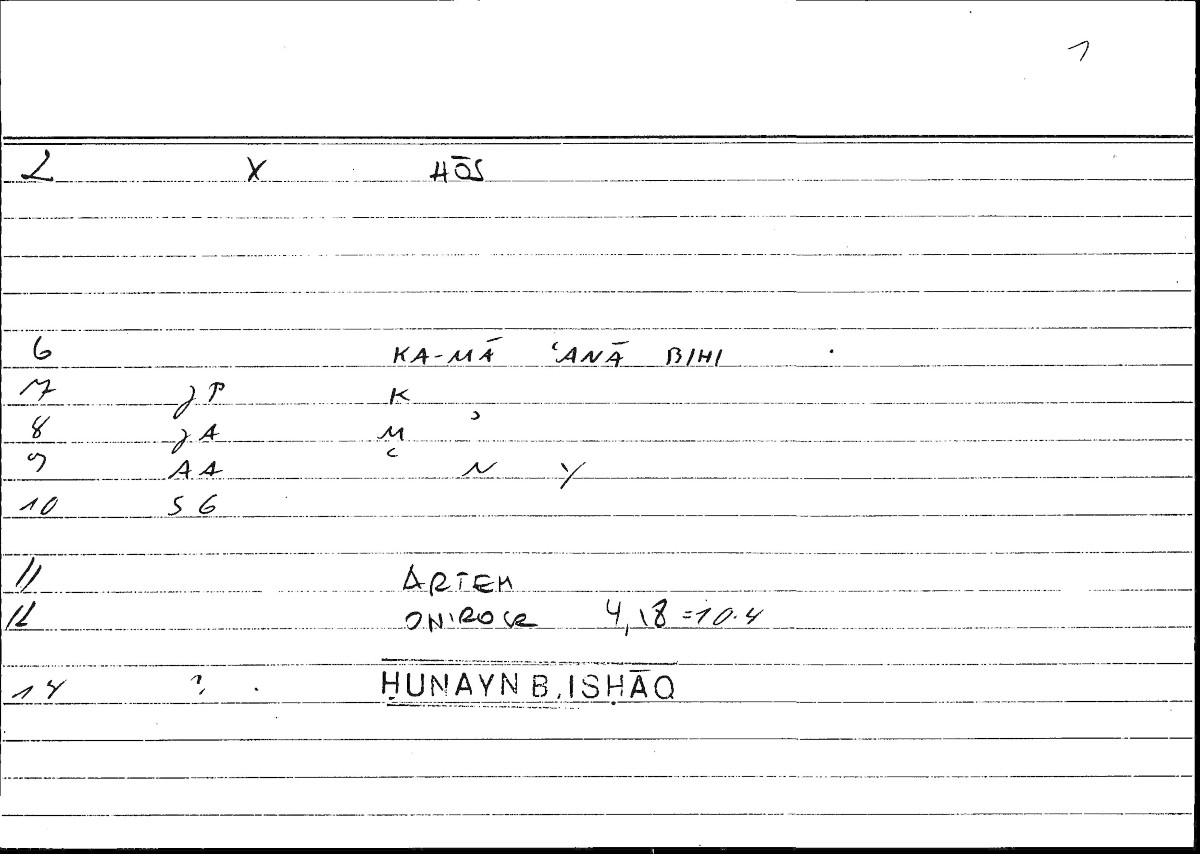 1
2 X HŌS
6 KA-MĀ ʿANĀ BIHI
7 JP K
8 JA M ʾ
9 AA ʿ N Y
10 SG
11 ARTEM
12 ONIROCR 4,18=10.4
14 ? . ḤUNAYN B. ISḤĀQ